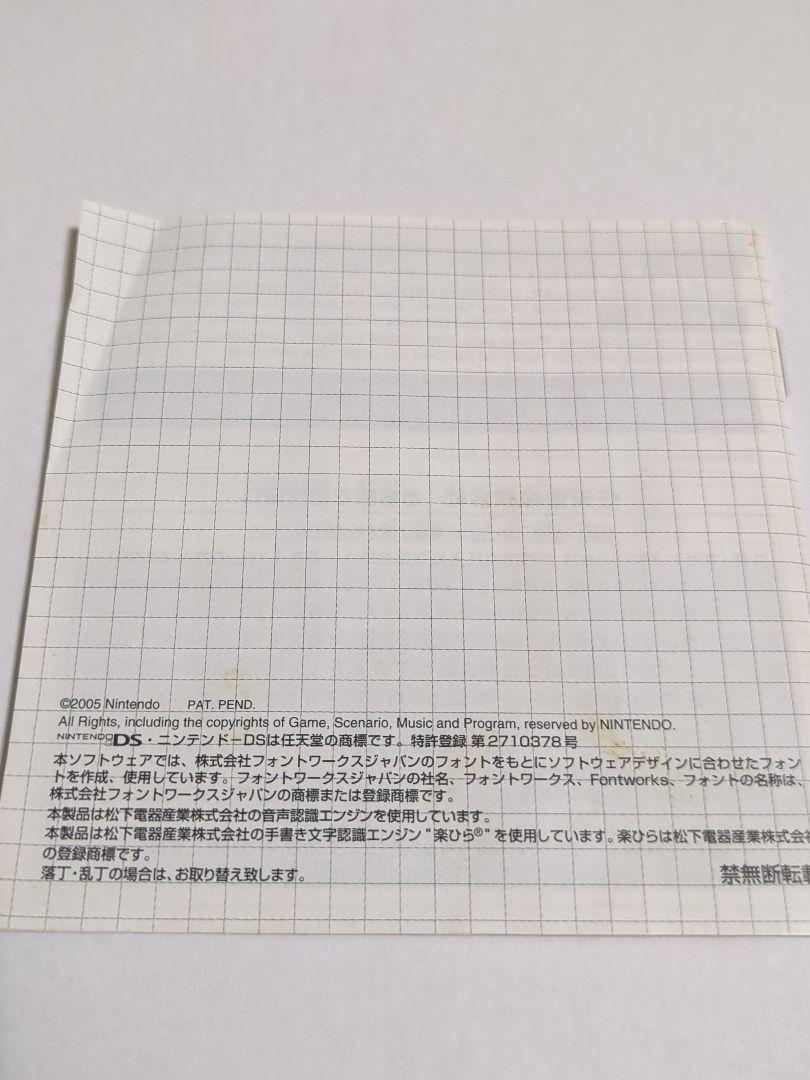 ©2005 Nintendo PAT. PEND.
All Rights, including the copyrights of Game, Scenario, Music and Program, reserved by NINTENDO.
NINTENDO DS・ニンテンドーDSは任天堂の商標です。特許登録 第2710378号
本ソフトウェアでは、株式会社フォントワークスジャパンのフォントをもとにソフトウェアデザインに合わせたフォン
トを作成、使用しています。フォントワークスジャパンの社名、フォントワークス、Fontworks、フォントの名称は、
株式会社フォントワークスジャパンの商標または登録商標です。
本製品は松下電器産業株式会社の音声認識エンジンを使用しています。
本製品は松下電器産業株式会社の手書き文字認識エンジン“楽ひら®”を使用しています。楽ひらは松下電器産業株式会社
の登録商標です。
落丁・乱丁の場合は、お取り替え致します。
禁無断転載